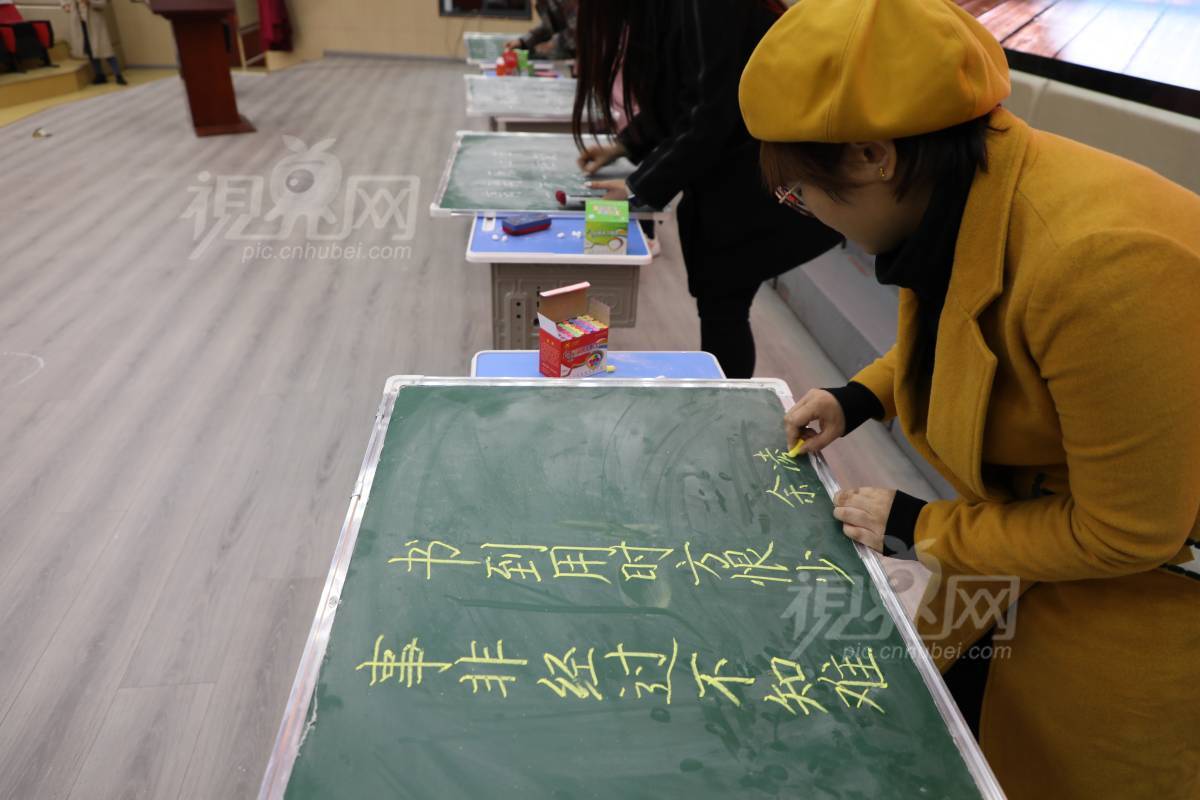 书到用时方恨少
事非经过不知难
余
視界网
pic.cnhubei.com
視界网
pic.cnhubei.com